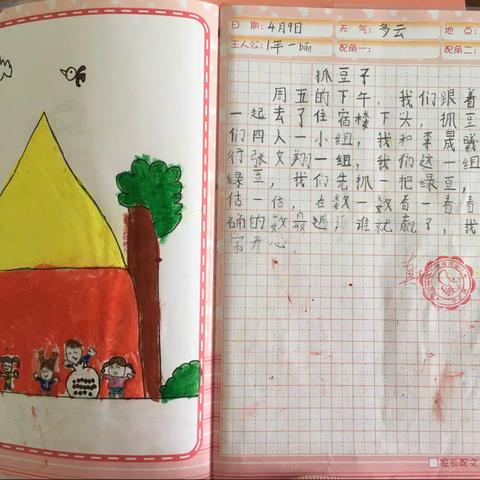 日期:4月9日 天气:多云 地点:
主人公:1年一bān 配角一: 配角二:
抓豆子
周五的下午,我们跟着
一起去了住宿楼下头,抓豆
们四人一小组,我和李晟曦
行张文翔一组,我们这一组
绿豆,我们先抓一把绿豆,
估一估,在数一数看一看看
确的数最近,谁就赢了,我
常开心。
真
家长配文